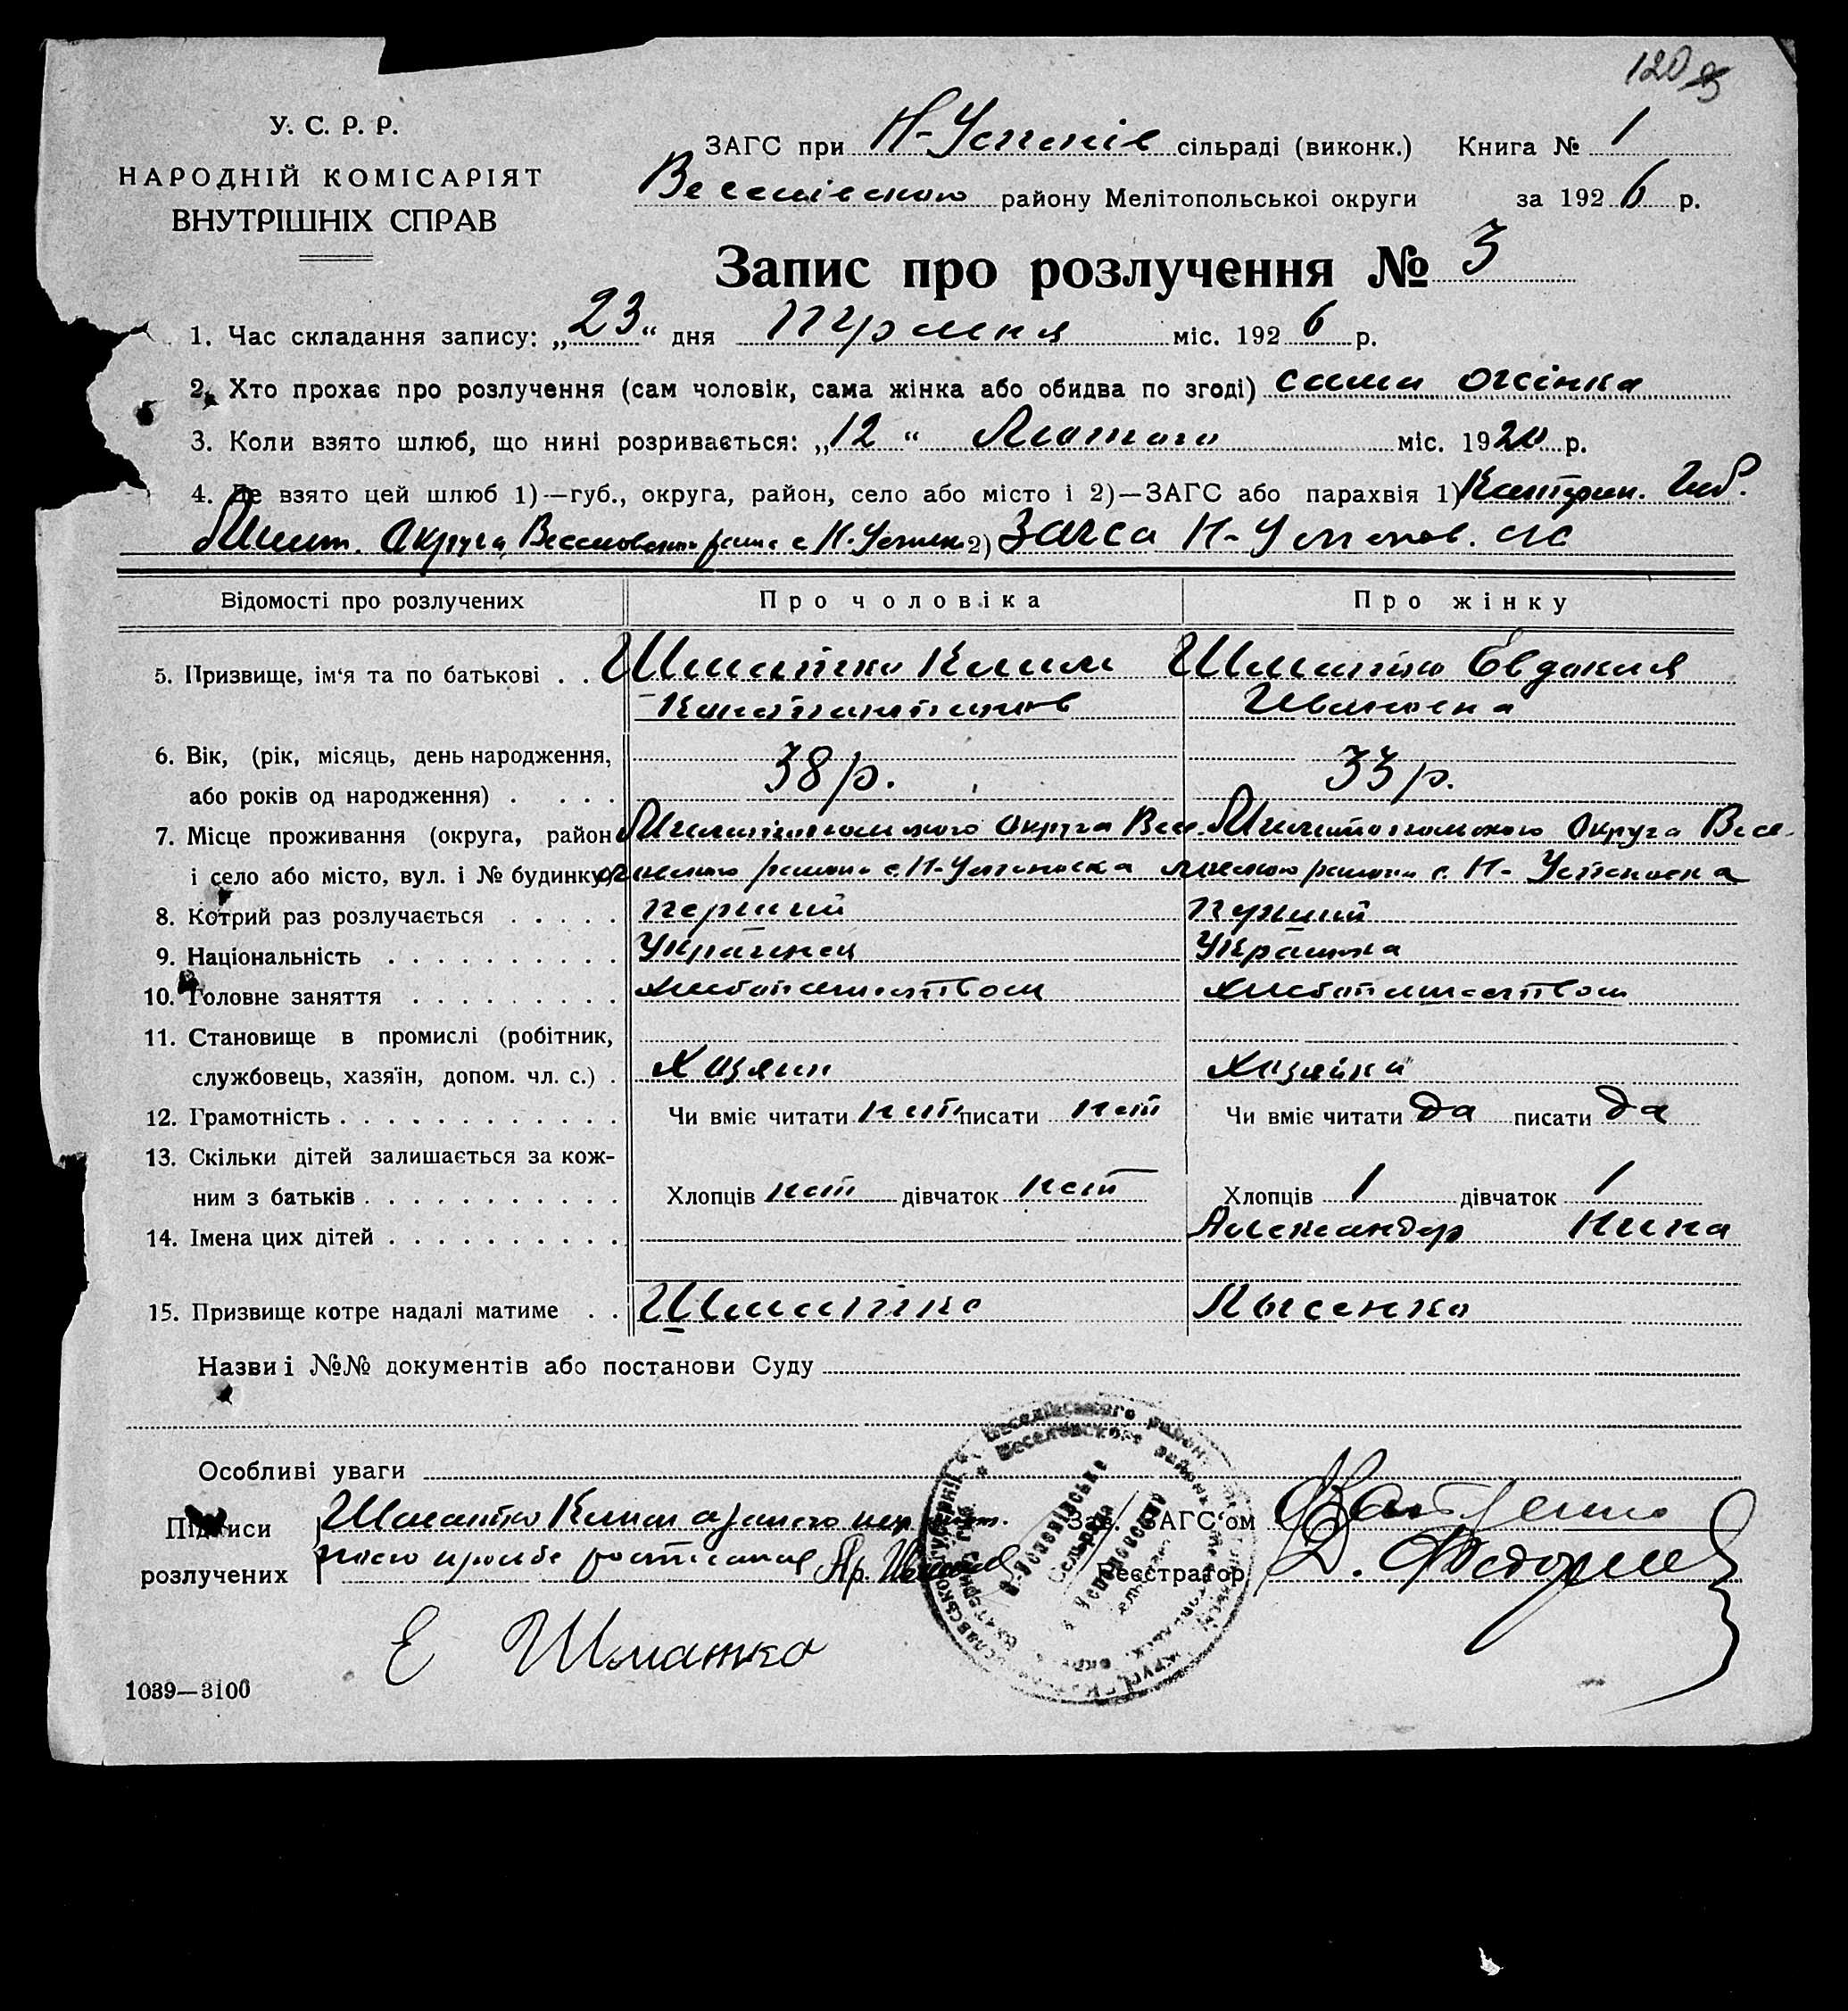 120
У. С. Р. Р.
НАРОДНІЙ КОМІСАРІЯТ
ВНУТРІШНІХ СПРАВ
ЗАГС при Н-Успенів сільраді (виконк.) Книга № 1
Веселівского району Мелітопольської округи за 1926 р.
Запис про розлучення № 3
1. Час складання запису: „23“ дня Травня міс. 1926 р.
2. Хто прохає про розлучення (сам чоловік, сама жінка або обидва по згоді) сама жінка
3. Коли взято шлюб, що нині розривається: „12“ Лютого міс. 1920 р.
4. Де взято цей шлюб 1)—губ., округа, район, село або місто і 2)—ЗАГС або парахвія 1) Катерин. Губ.
Мелит. Округа, Веселовского с. Н-Успен 2) Загса Н-Успенов.
Відомості про розлучених Про чоловіка Про жінку
5. Призвище, ім‘я та по батькові . . Шматко Клим Шматко Евдокия
Константинов Ивановна
6. Вік, (рік, місяць, день народження,
або років од народження) . . . . 38 р. 33 р.
7. Місце проживання (округа, район Мелитопольского Округа Весе- Мелитопольского Округа Весе-
і село або місто, вул. і № будинку) района с. Н-Успеновка района с. Н-Успеновка
8. Котрий раз розлучається . . . . . перший перший
9. Національність . . . . . . . . . . Украинец Украинка
10. Головне заняття . . . . . . . . . хлебопашеством хлебопашеством
11. Становище в промислі (робітник,
службовець, хазяїн, допом. чл. с.) . Хозяин Хозяйка
12. Грамотність . . . . . . . . . . . . Чи вміє читати нет писати нет Чи вміє читати да писати да
13. Скільки дітей залишається за кож-
ним з батьків . . . . . . . . . . . Хлопців нет дівчаток нет Хлопців 1 дівчаток 1
14. Імена цих дітей . . . . . . . . . . Александер Нина
15. Призвище котре надалі матиме . . Шматко Лысенко
Назви і №№ документів або постанови Суду
Особливі уваги
Підписи Шматко Клим Зав. ЗАГС‘ом
розлучених просьбе росписался Реєстратор Д.
Е Шматко
1039—3100